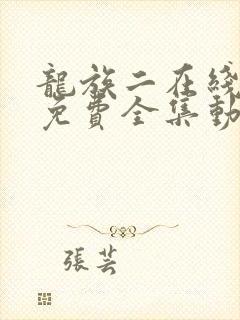 龍族二在綫
免費全集動
張芸